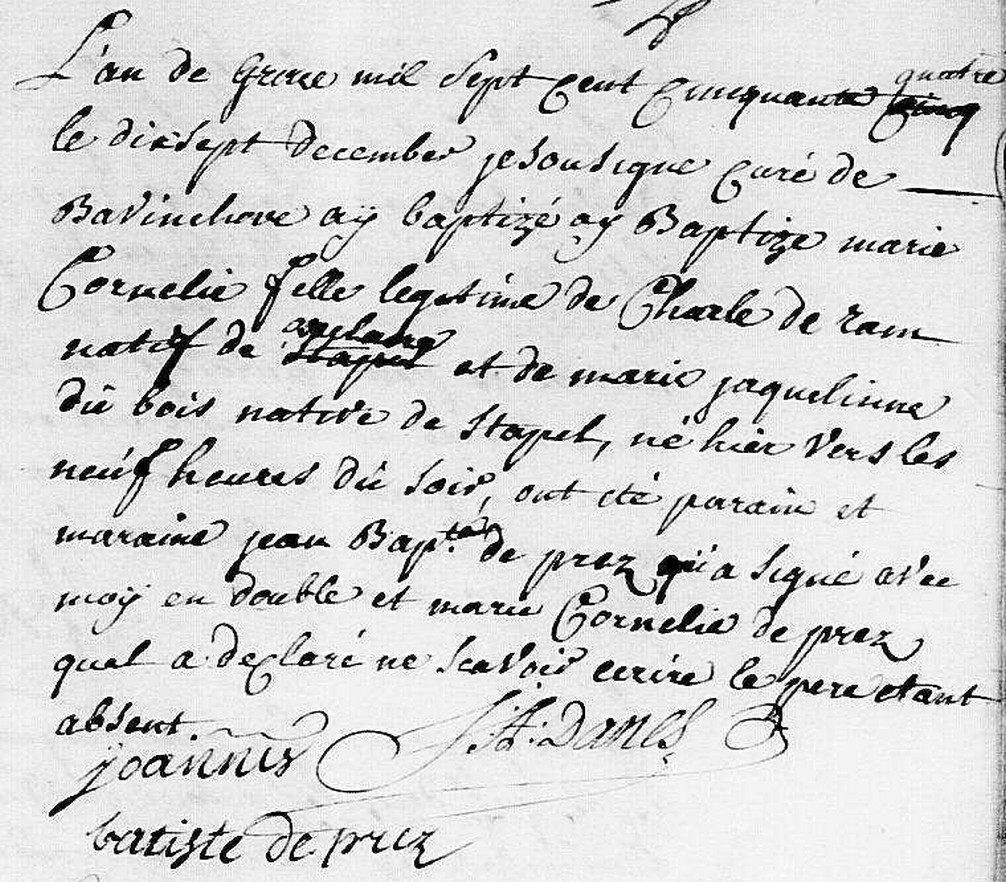 L'an de Grace mil Sept Cent Cinquante quatre
le dixsept december jesousigne Curé de
Bavinchove aÿ baptizé aÿ Baptize marie
Cornelie fille legitime de Charle de ram
natif de et de marie jaquelinne
dù bois native de Stapel, né hier vers les
neuf heures dù soir, ont été parain et
maraine jean Bapt.te de prez qui a signé avec
moÿ en double et marie Cornelie de prez
quel a declaré ne scavoir ecrire le pere etant
absent.
joannis J.F. Danes
batiste de prez